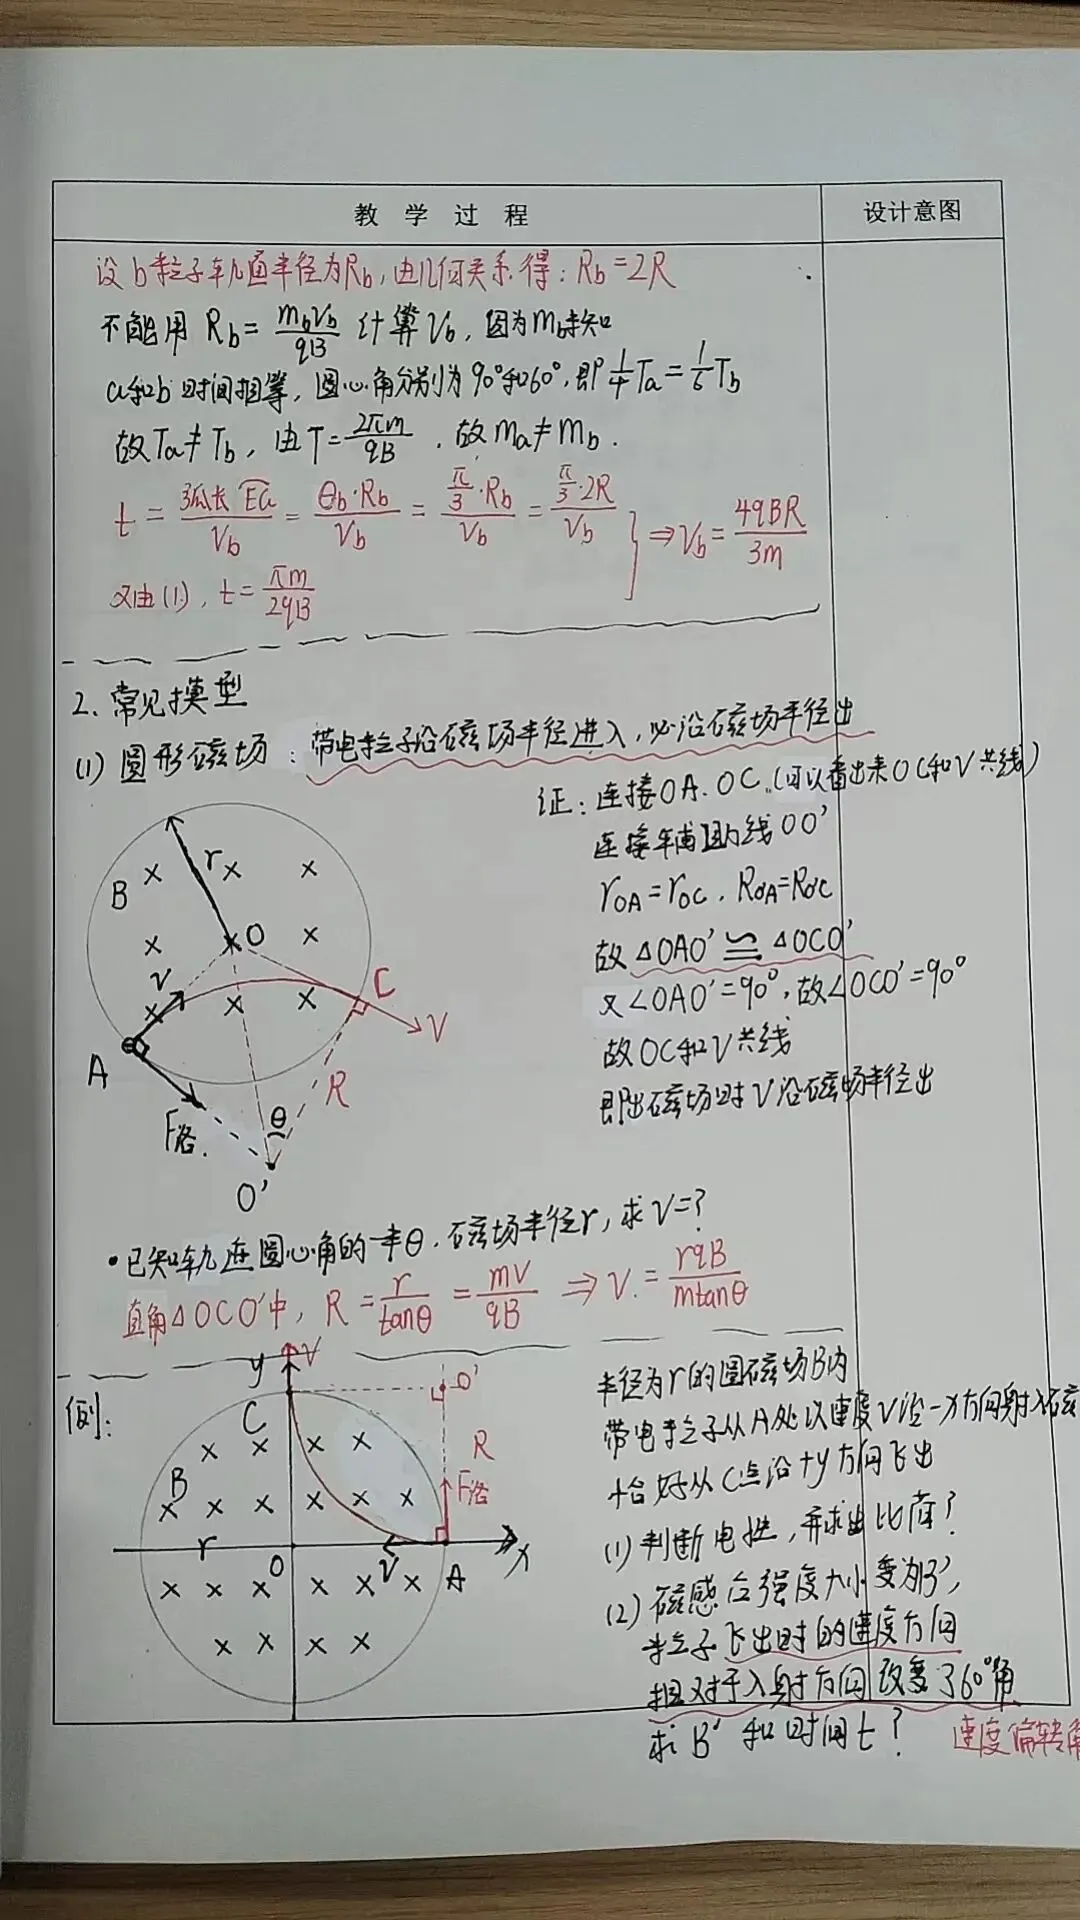 教 学 过 程
设计意图
设b粒子轨道半径为Rb,由几何关系得:Rb=2R
不能用 Rb=mbVb/qB 计算Vb,因为mb未知
a和b时间相等,圆心角分别为90°和60°,即 1/4 Ta=1/6 Tb
故Ta≠Tb,由T=2πm/qB,故ma≠mb.
t=弧长Ea/Vb=θb·Rb/Vb=π/3·Rb/Vb=π/3·2R/Vb
又由(1),t=πm/2qB
}⇒Vb=4qBR/3m
2.常见模型
(1)圆形磁场:带电粒子沿磁场半径进入,必沿磁场半径出
证:连接OA.OC.(可以看出来OC和V共线)
连接辅助线OO'
rOA=rOC.RO'A=RO'C
故△OAO'≌△OCO'
又∠OAO'=90°,故∠OCO'=90°
故OC和V共线
即出磁场时V沿磁场半径出
B
r
O
V
C
V
A
F洛.
θ
R
O'
•已知轨迹圆心角的一半θ.磁场半径r,求V=?
直角△OCO'中,R=r/tanθ=mV/qB⇒V=rqB/mtanθ
例:
y
V
C
O'
B
R
F洛
r
O
V
A
x
半径为r的圆磁场B内
带电粒子从A处以速度V沿-x方向射入磁
恰好从C点沿+y方向飞出
(1)判断电性,并求出比荷?
(2)磁感应强度大小变为B',
粒子飞出时的速度方向
相对于入射方向改变了60°角
求B'和时间t?
速度偏转角